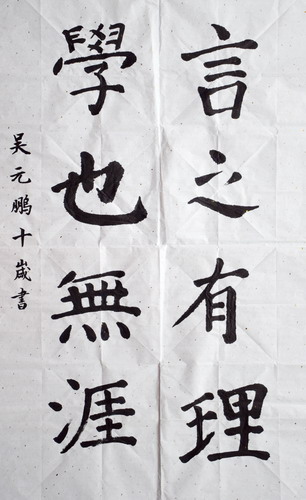 言之有理
學也無涯
吴元鹏十歲書